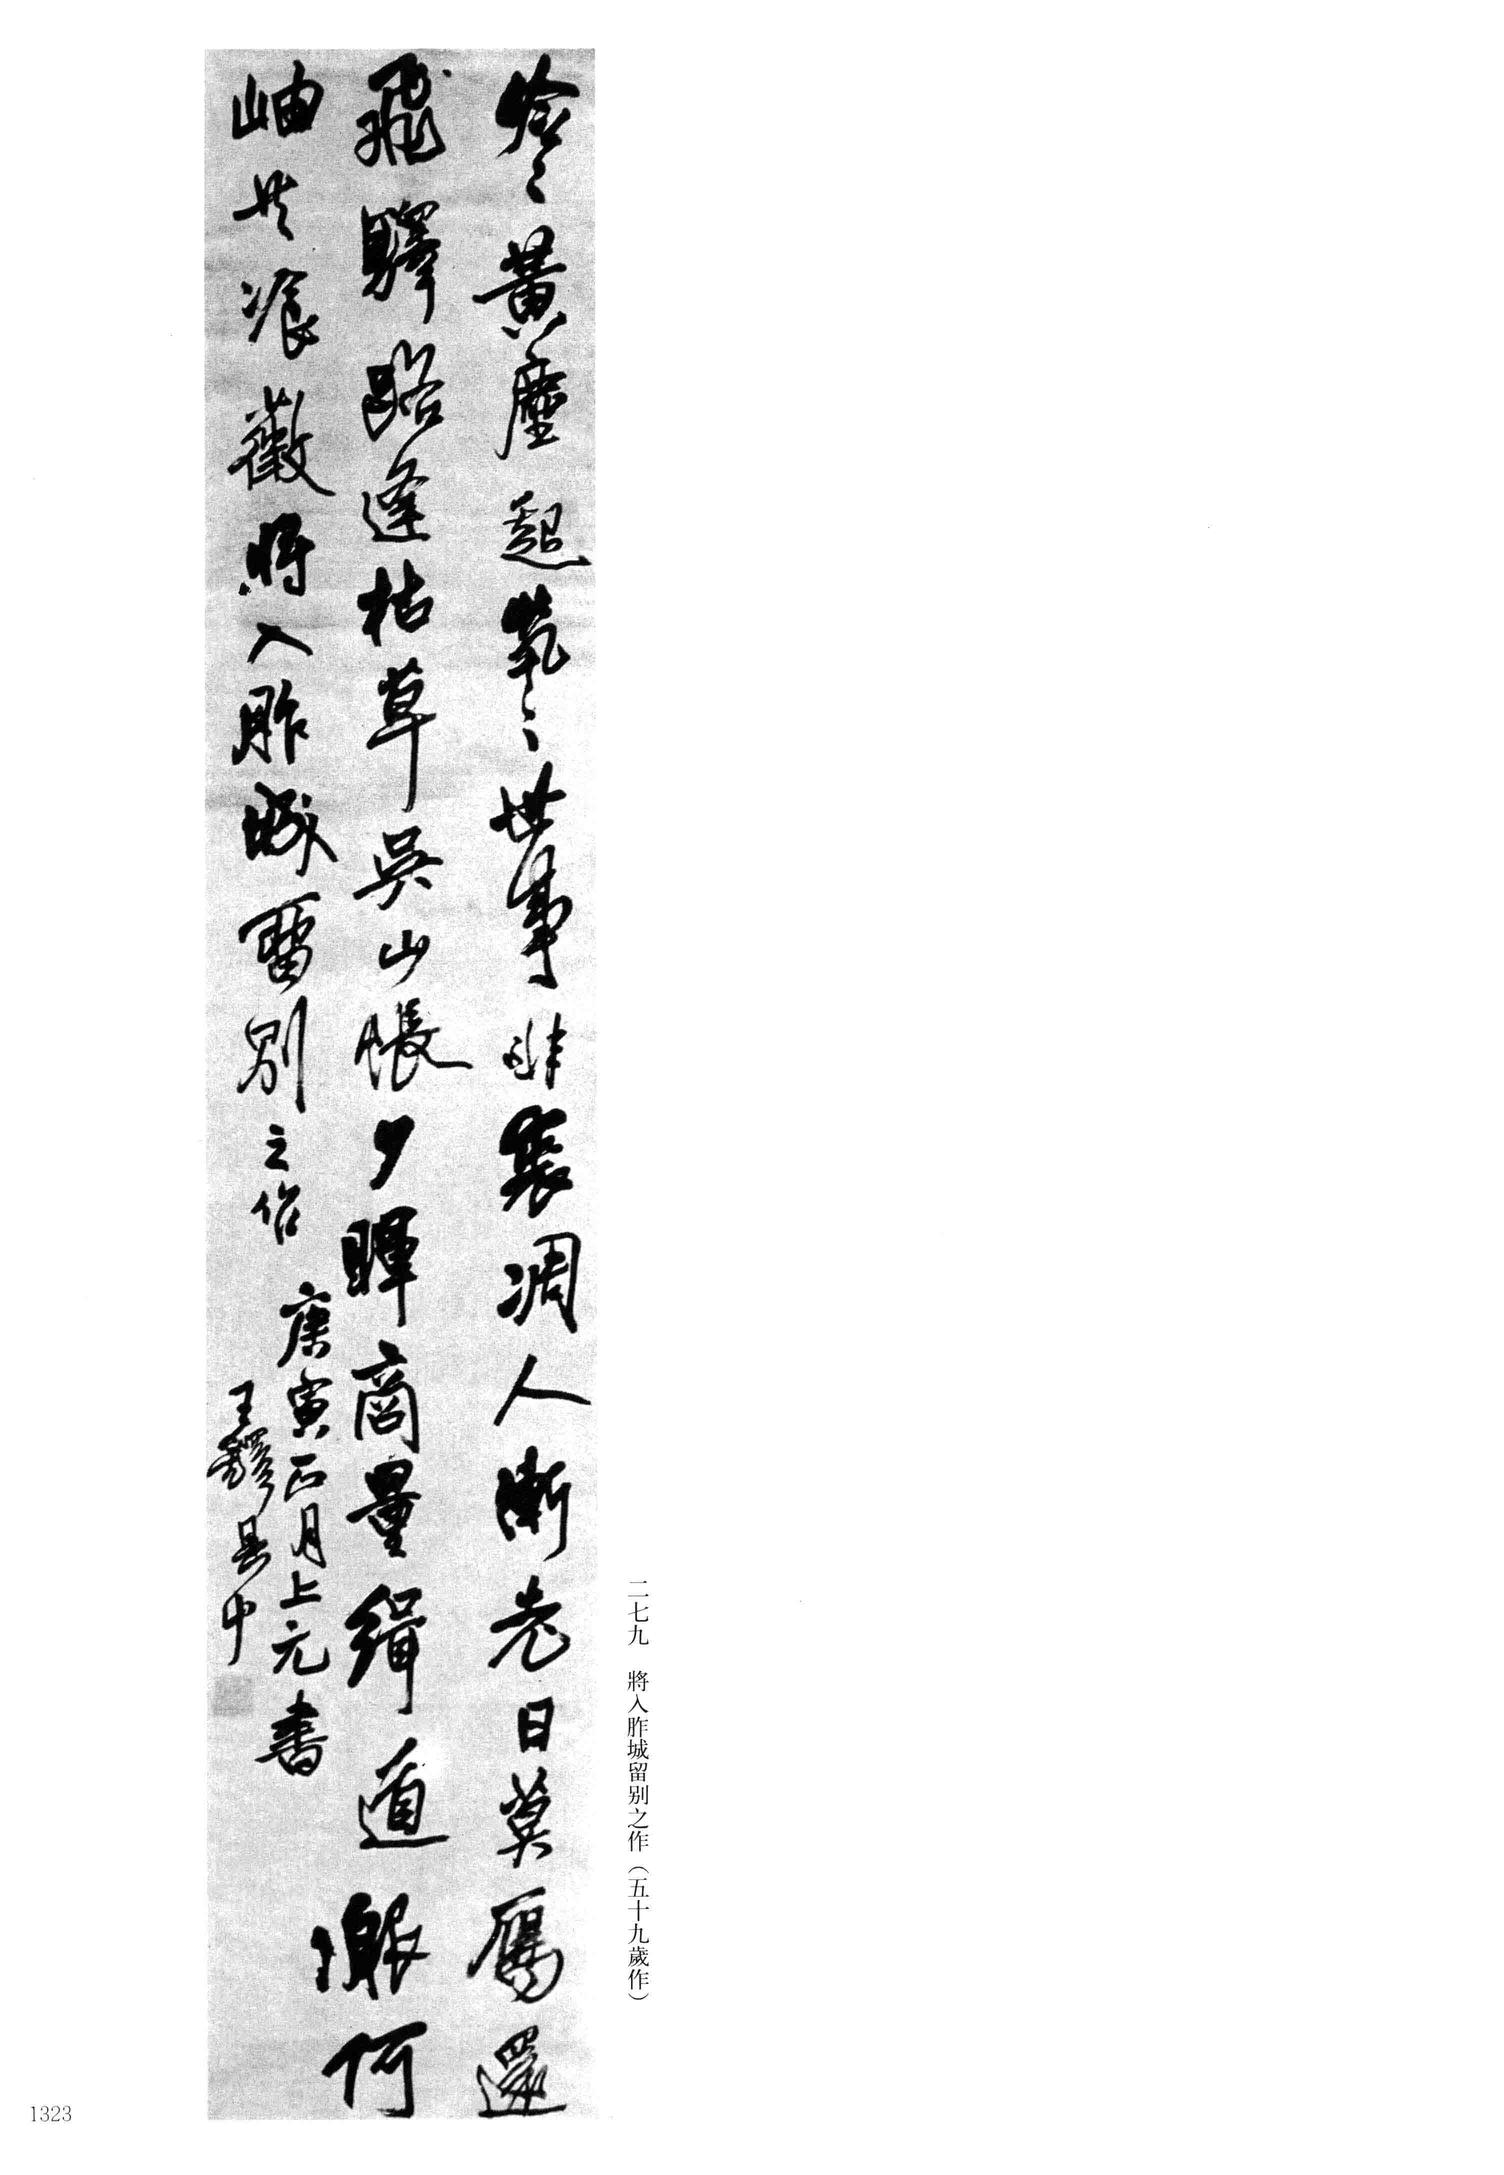 冷〻黃塵起茕〻世事非裘凋人漸老日莫雁還
飛驛路逢枯草吳山悵夕暉商量緝道服何
岫共飡薇將入胙城留別之作
庚寅正月上元書
王鐸具中
二七九　將入胙城留別之作（五十九歲作）
1323